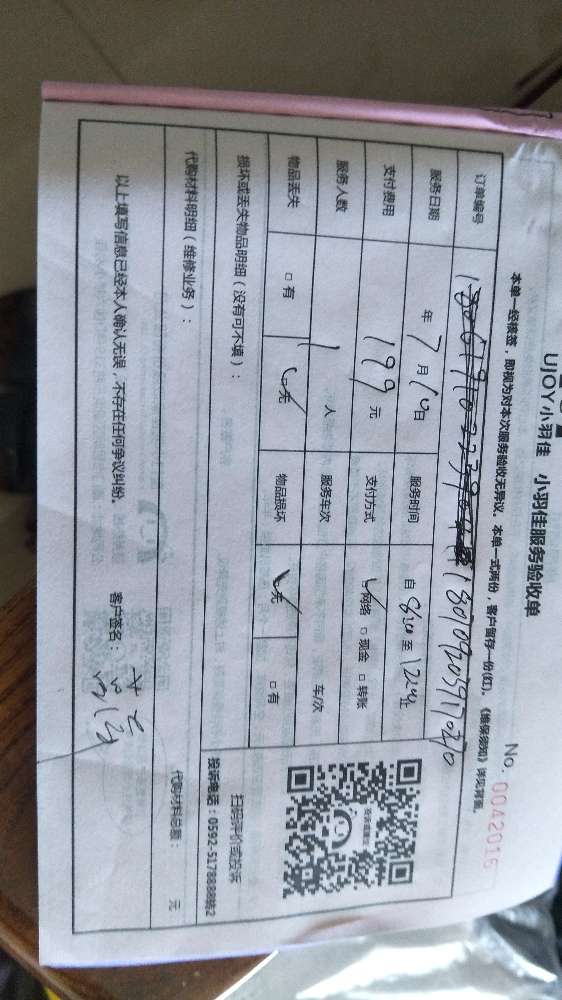 UJOY小羽佳 小羽佳服务验收单
No. 0042016
本单一经核签，即视为对本次服务验收无异议。本单一式两份，客户留存一份(红)。《维保须知》详见列表。
订单编号
服务日期 年 7 月 10 日 服务时间 自 8:00 至 12:00
支付费用 199 元 支付方式 ☑网络 □现金 □转账
服务人数 1 人 服务车次 车/次
物品丢失 □有 ☑无 物品损坏 ☑无 □有
损坏或丢失物品明细（没有可不填）：
扫码评价或投诉
投诉电话：0592-5178888转2
代购材料明细（维修业务）：
代购材料总额： 元
以上填写信息已经本人确认无误，不存在任何争议纠纷。 客户签名：